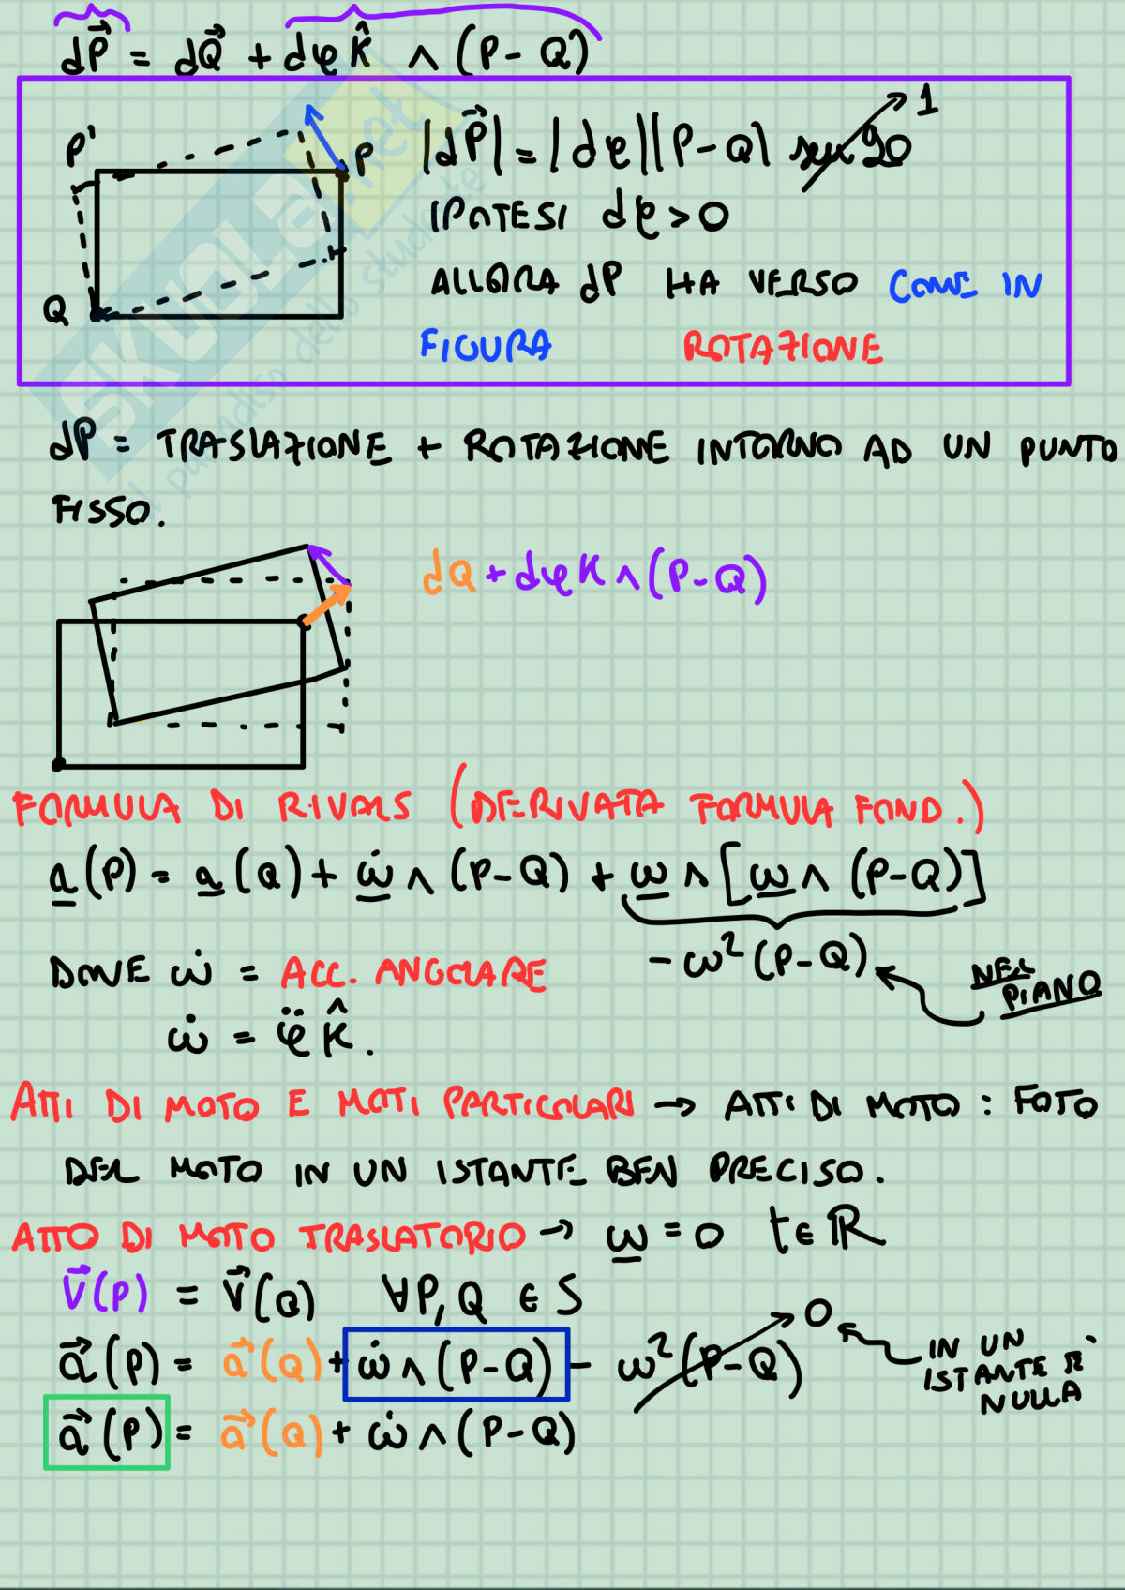 dP⃗ = dQ⃗ + dφ k̂ ∧ (P - Q)
P' P |dP⃗| = |dφ||P-Q| sen 90 1
IPOTESI dφ > 0
Q ALLORA dP HA VERSO COME IN
FIGURA ROTAZIONE
SKUOLA.net
dP = TRASLAZIONE + ROTAZIONE INTORNO AD UN PUNTO
FISSO.
dQ + dφ K ∧ (P-Q)
FORMULA DI RIVALS (DERIVATA FORMULA FOND.)
a(P) = a(Q) + ω̇ ∧ (P-Q) + ω ∧ [ω ∧ (P-Q)]
DOVE ω̇ = ACC. ANGOLARE - ω²(P-Q) NEL PIANO
ω̇ = φ̈ k̂.
ATTI DI MOTO E MOTI PARTICOLARI → ATTI DI MOTO : FOTO
DEL MOTO IN UN ISTANTE BEN PRECISO.
ATTO DI MOTO TRASLATORIO → ω = 0 t ∈ ℝ
v⃗(P) = v⃗(Q) ∀P, Q ∈ S
a⃗(P) = a⃗(Q) + ω̇ ∧ (P-Q) - ω²(P-Q) 0 IN UN ISTANTE È NULLA
a⃗(P) = a⃗(Q) + ω̇ ∧ (P-Q)